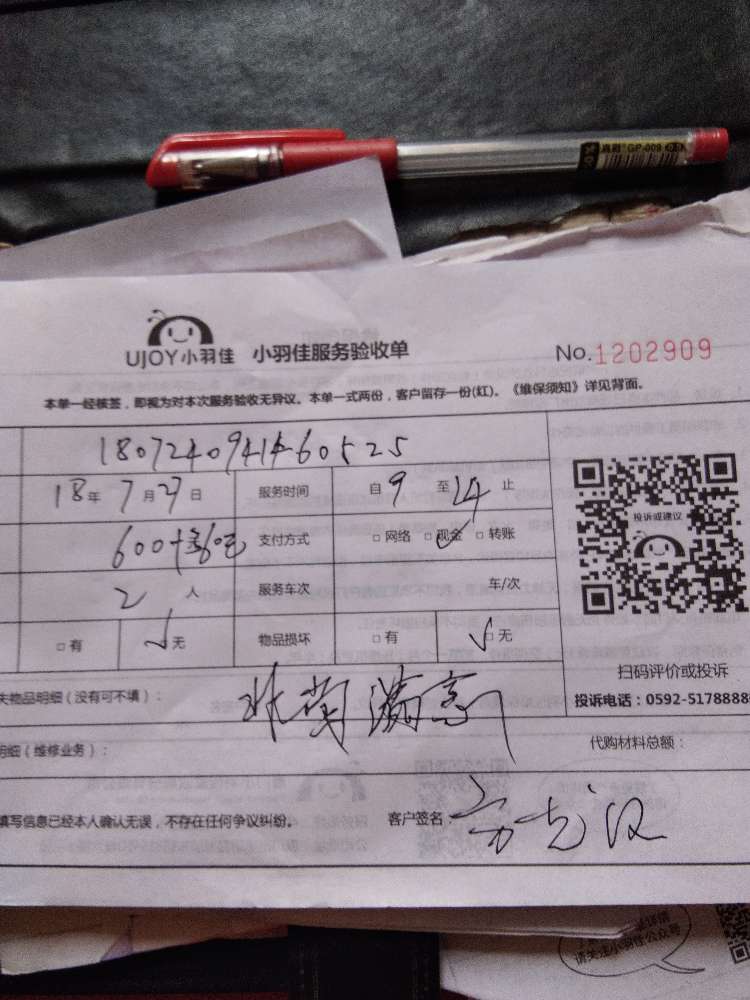 真彩 GP-009 0.5
UJOY小羽佳 小羽佳服务验收单 No.1202909
本单一经核签，即视为对本次服务验收无异议。本单一式两份，客户留存一份(红)。《维保须知》详见背面。
18年7月27日 服务时间 自9至14止
600+36元 支付方式 □网络 □现金 □转账
投诉或建议
2人 服务车次 车/次
□有 √无 物品损坏 □有 √□无
扫码评价或投诉
失物品明细（没有可不填）：
投诉电话：0592-5178888
明细（维修业务）： 代购材料总额：
填写信息已经本人确认无误，不存在任何争议纠纷。 客户签名：
请关注小羽佳公众号